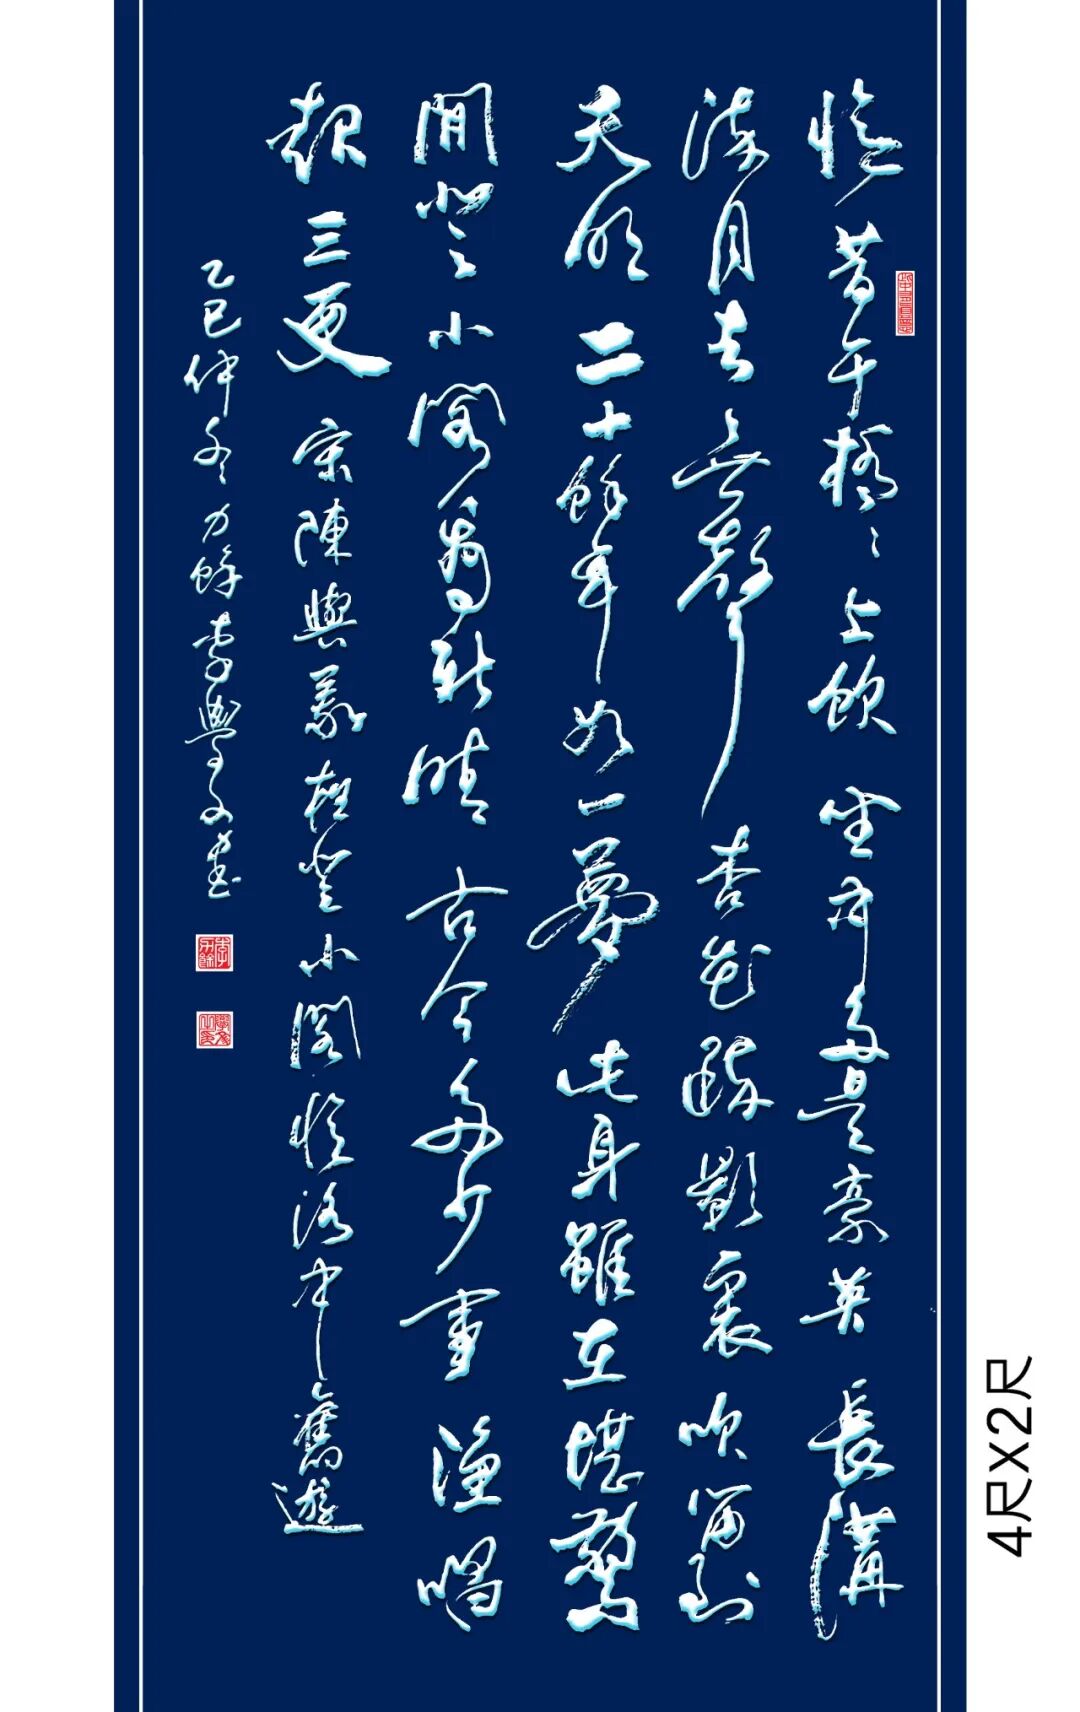 憶昔午橋〻上飲坐中多是豪英長溝
流月去無聲杏花疏影裏吹笛到
天明二十餘年如一夢此身雖在堪驚
閒登小閣看新晴古今多少事漁唱
起三更宋陳與義登小閣憶洛中舊遊
乙巳仲冬力餘李學文書
4尺x2尺